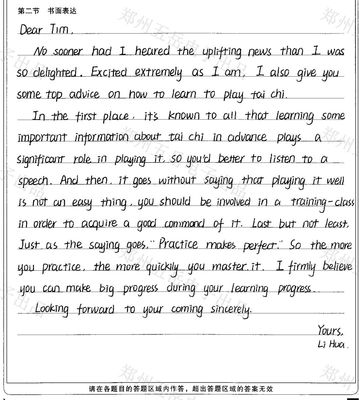 第二节 书面表达
Dear Tim,
No sooner had I heared the uplifting news than I was
so delighted. Excited extremely as I am, I also give you
some top advice on how to learn to play tai chi.
In the first place, it's known to all that learning some
important information about tai chi in advance plays a
significant role in playing it, so you'd better to listen to a
speech. And then, it goes without saying that playing it well
is not an easy thing, you should be involved in a training-class
in order to acquire a good command of it. Last but not least,
Just as the saying goes, "Practice makes perfect." So the more
you practice, the more quickly you master it. I firmly believe
you can make big progress during your learning progress.
Looking forward to your coming sincerely.
Yours,
Li Hua.
请在各题目的答题区域内作答，超出答题区域的答案无效